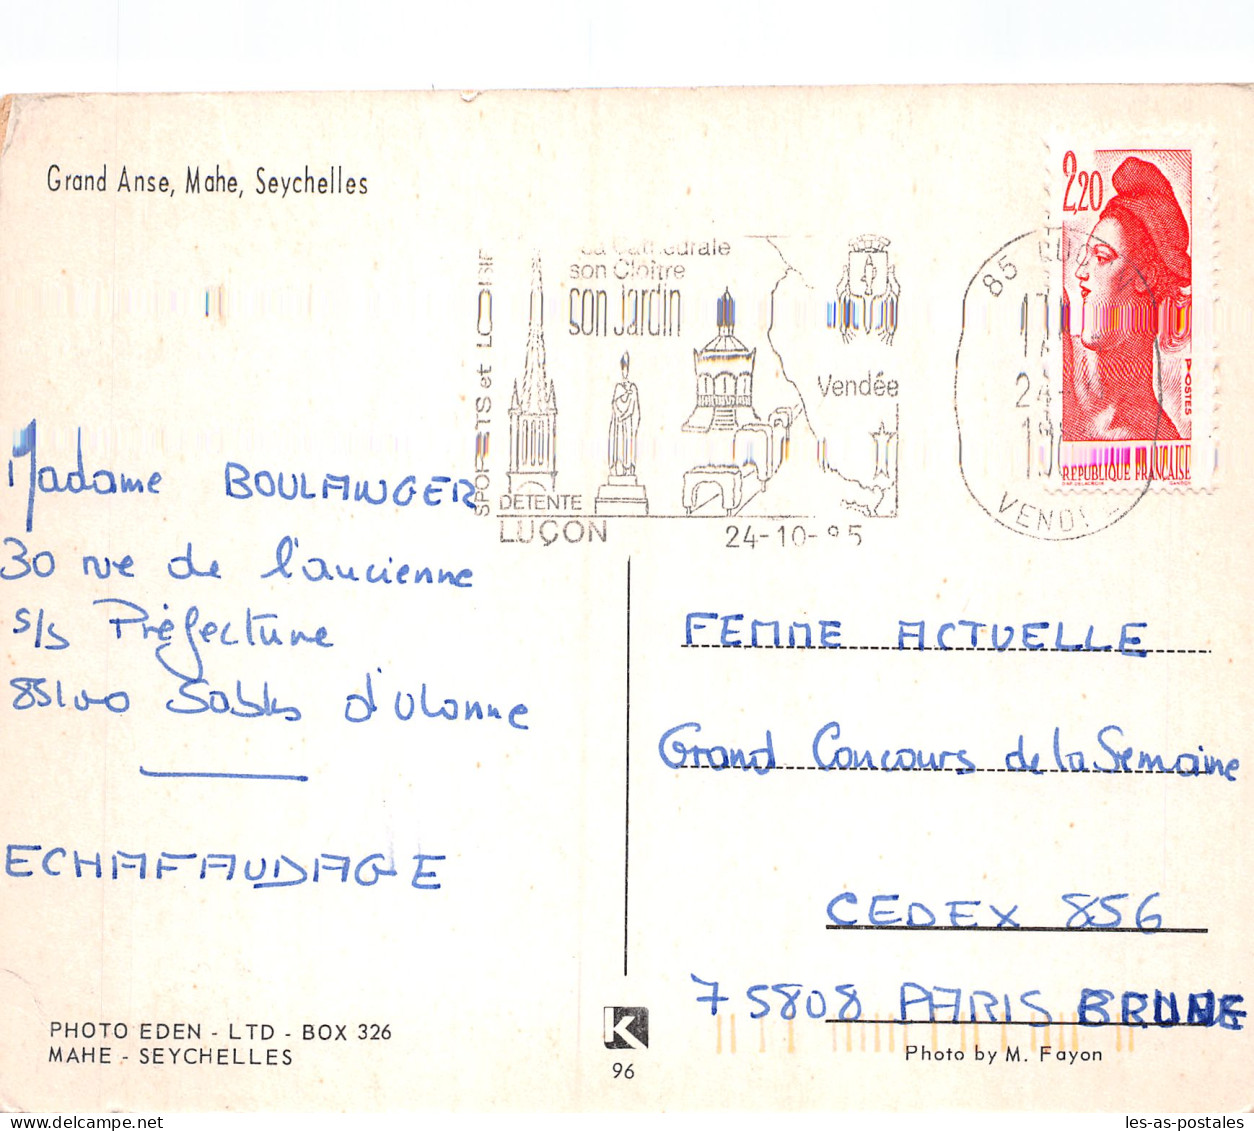 Grand Anse, Mahe, Seychelles
2,20
POSTES
REPUBLIQUE FRANÇAISE
sa Cathédrale
son Cloître
son Jardin
SPORTS et LOISIRS
Vendée
DETENTE
LUÇON
24-10-85
85 LUÇON
VENDÉE
Madame BOULANGER
30 rue de l'ancienne
s/s Préfecture
85100 Sables d'Olonne
ECHAFAUDAGE
FEMME ACTUELLE
Grand Concours de la Semaine
CEDEX 856
75808 PARIS BRUNE
PHOTO EDEN - LTD - BOX 326
MAHE - SEYCHELLES
K
96
Photo by M. Fayon
les-as-postales